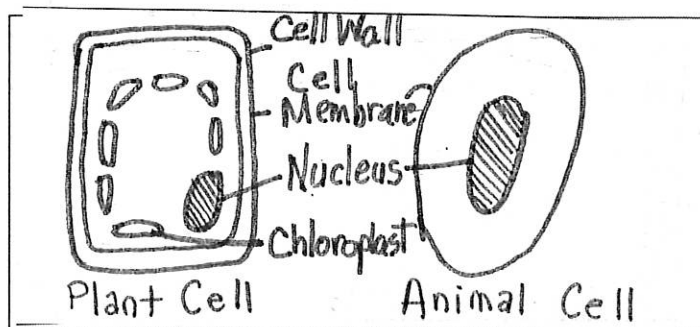 Cell Wall
Cell
Membrane
Nucleus
Chloroplast
Plant Cell
Animal Cell